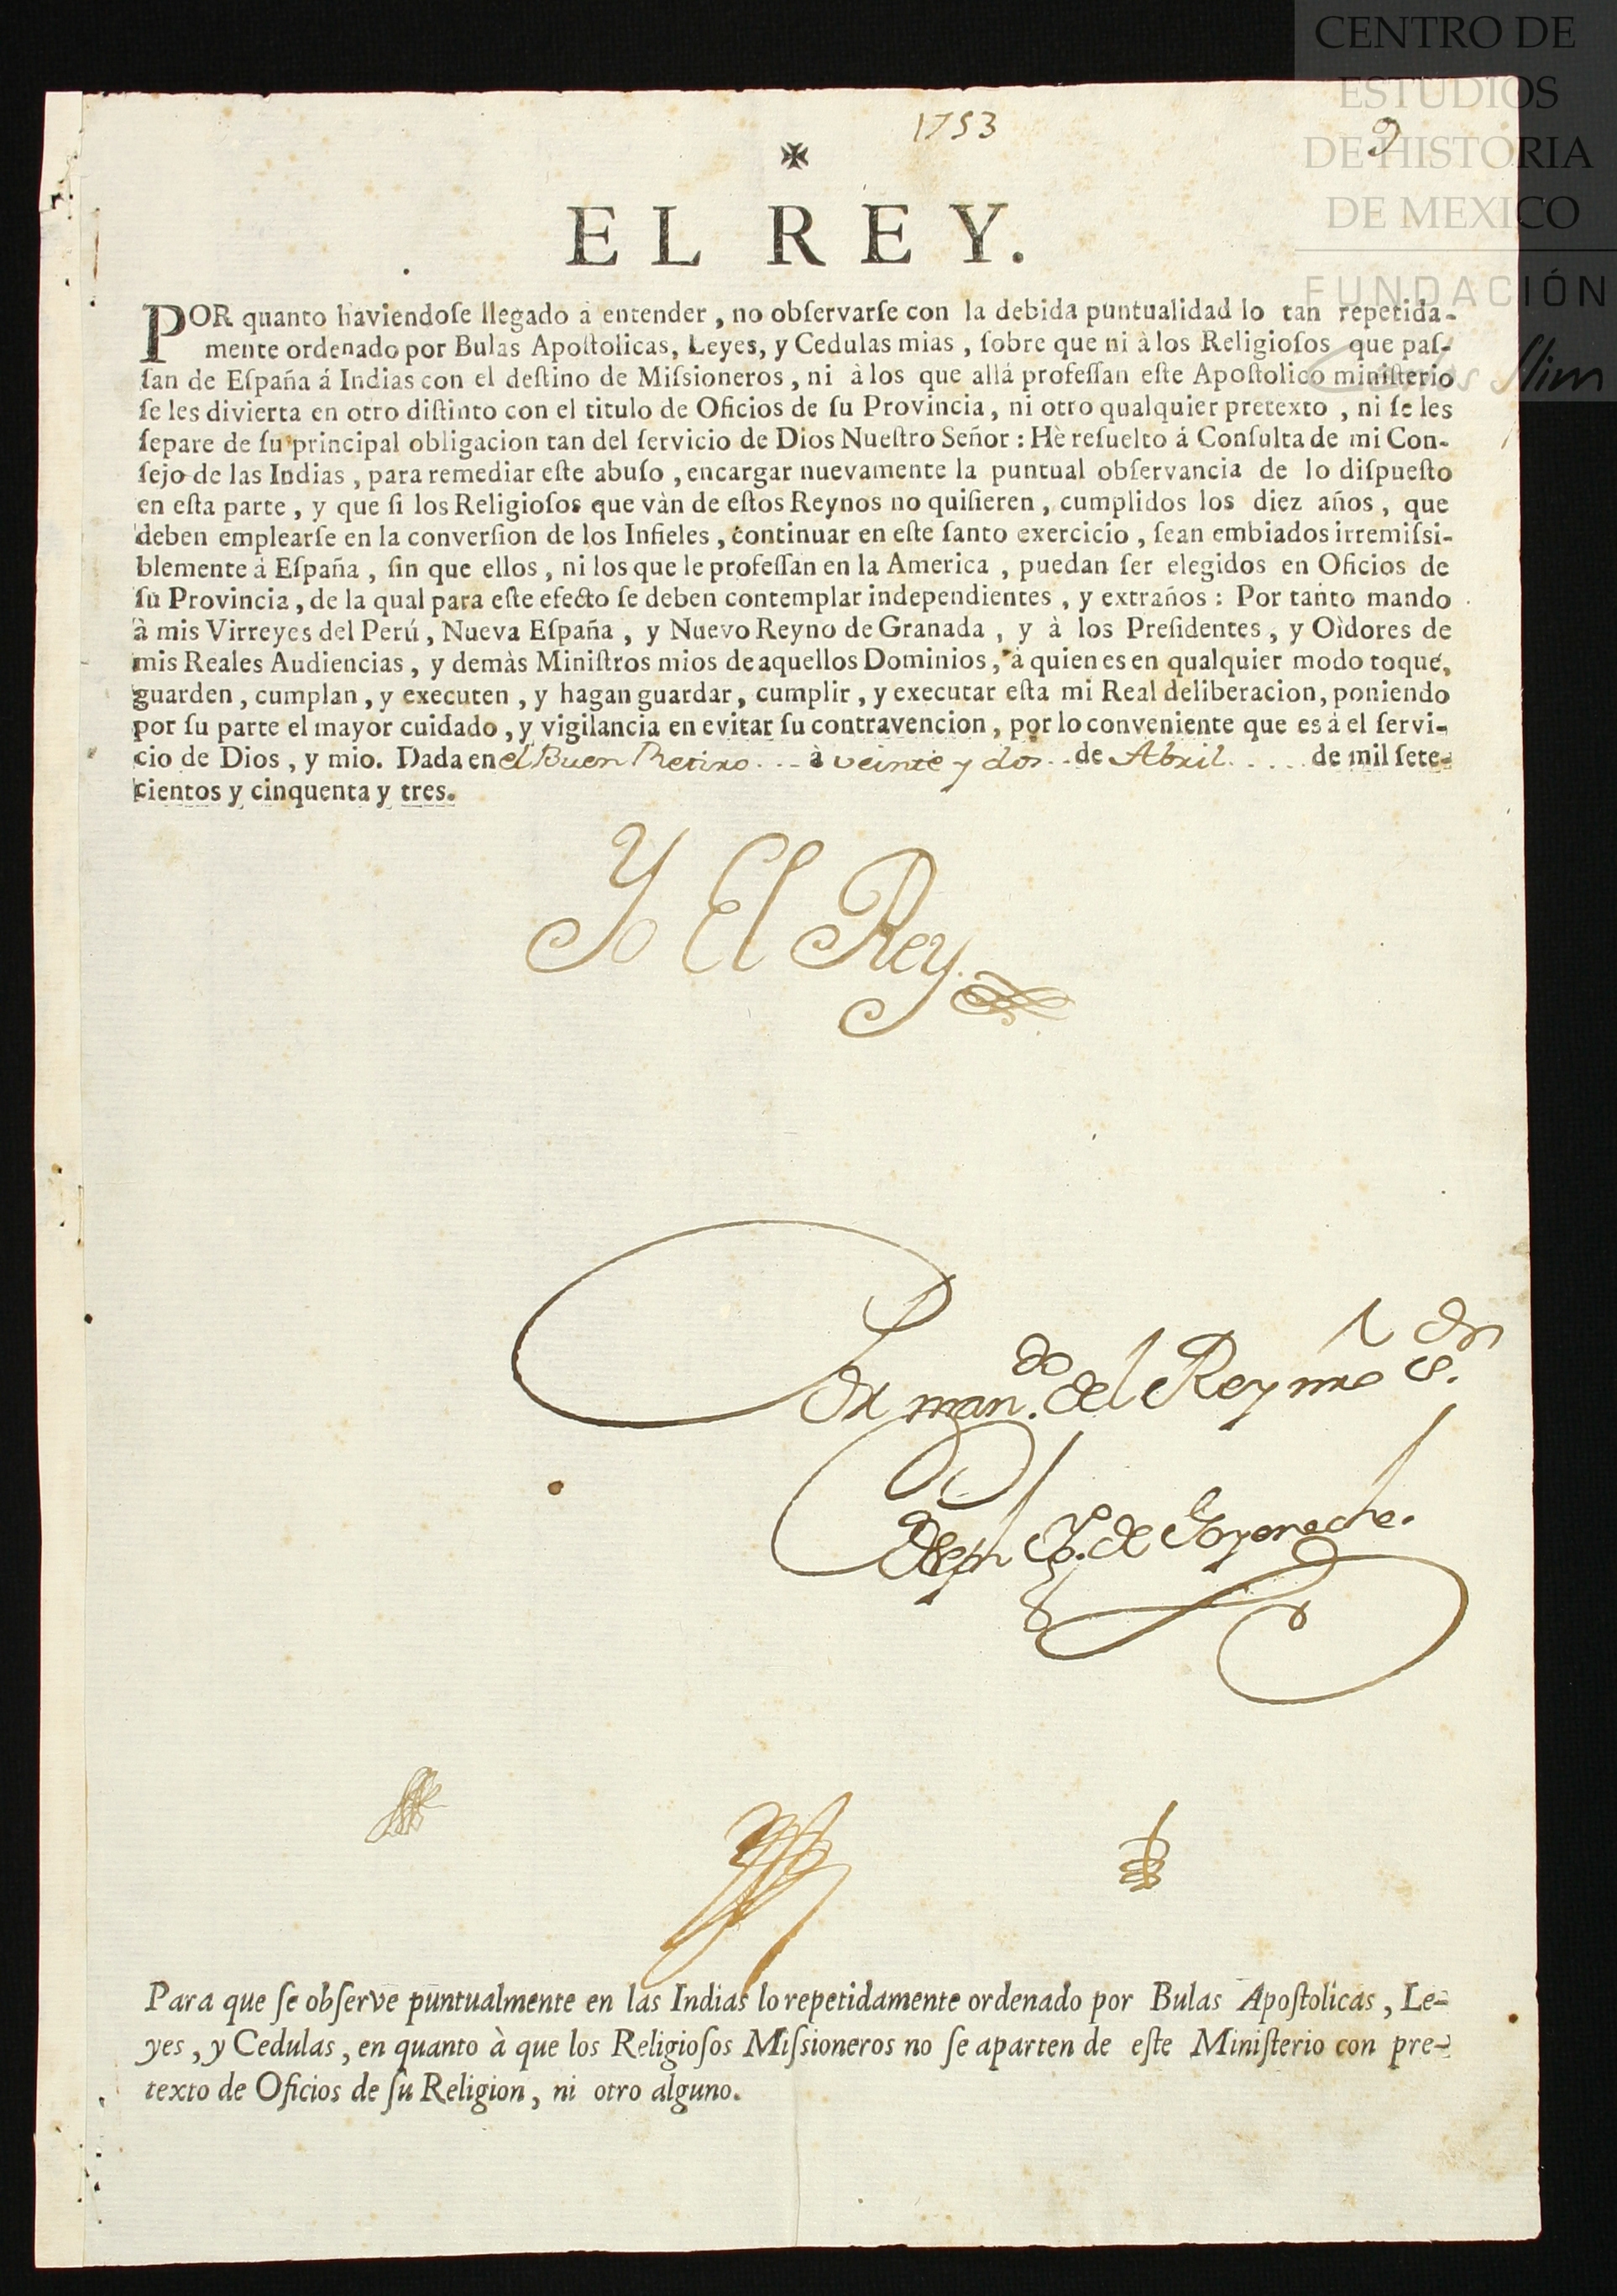 CENTRO DE
ESTUDIOS
DE HISTORIA
DE MEXICO
FUNDACIÓN
Carlos Slim
1753
9
✠
EL REY.
POR quanto haviendoſe llegado à entender, no obſervarſe con la debida puntualidad lo tan repetida-
mente ordenado por Bulas Apoſtolicas, Leyes, y Cedulas mias, ſobre que ni à los Religioſos que paſ-
ſan de Eſpaña á Indias con el deſtino de Miſsioneros, ni à los que allá profeſſan eſte Apoſtolico miniſterio
ſe les divierta en otro diſtinto con el titulo de Oficios de ſu Provincia, ni otro qualquier pretexto, ni ſe les
ſepare de ſu principal obligacion tan del ſervicio de Dios Nueſtro Señor: Hè reſuelto á Conſulta de mi Con-
ſejo de las Indias, para remediar eſte abuſo, encargar nuevamente la puntual obſervancia de lo diſpueſto
en eſta parte, y que ſi los Religioſos que vàn de eſtos Reynos no quiſieren, cumplidos los diez años, que
deben emplearſe en la converſion de los Infieles, continuar en eſte ſanto exercicio, ſean embiados irremiſsi-
blemente á Eſpaña, ſin que ellos, ni los que le profeſſan en la America, puedan ſer elegidos en Oficios de
ſu Provincia, de la qual para eſte efecto ſe deben contemplar independientes, y extraños: Por tanto mando
à mis Virreyes del Perú, Nueva Eſpaña, y Nuevo Reyno de Granada, y à los Preſidentes, y Oìdores de
mis Reales Audiencias, y demàs Miniſtros mios de aquellos Dominios, à quienes en qualquier modo toque,
guarden, cumplan, y executen, y hagan guardar, cumplir, y executar eſta mi Real deliberacion, poniendo
por ſu parte el mayor cuidado, y vigilancia en evitar ſu contravencion, por lo conveniente que es à el ſervi-
cio de Dios, y mio. Dada en el Buen Retiro... à veinte y dos.. de Abril.... de mil ſete-
cientos y cinquenta y tres.
Yo El Rey
Por man.do del Rey nro S.or
Joseph Ig.o de Goyeneche.
Para que ſe obſerve puntualmente en las Indias lo repetidamente ordenado por Bulas Apoſtolicas, Le-
yes, y Cedulas, en quanto à que los Religioſos Miſsioneros no ſe aparten de eſte Miniſterio con pre-
texto de Oficios de ſu Religion, ni otro alguno.